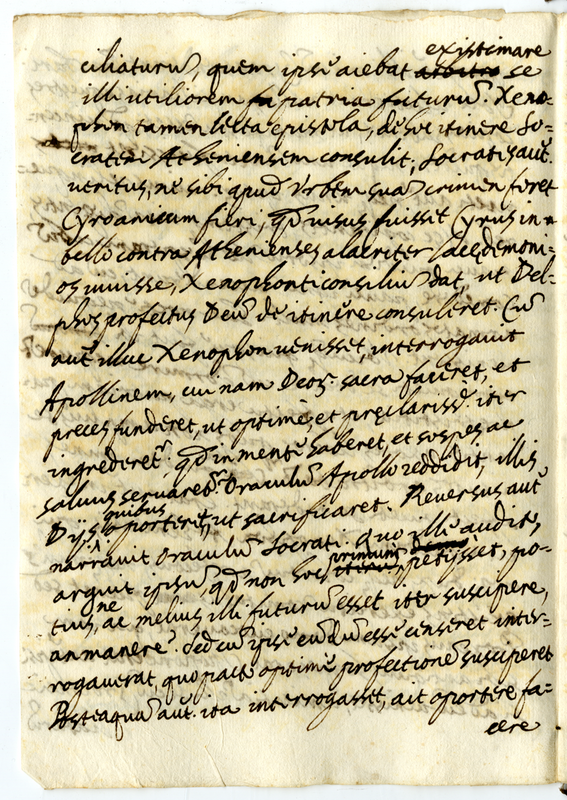 existimare
ciliaturū, quem ipse aiebat arbitro se
illi utiliorem fa patria futurū. Xeno=
phon tamen lecta epistola, de hoc itinere So=
cratem Atheniensem consulit; Socratis aūt.
ueritus, ne sibi apud Vrbem suā crimen foret
Cyro amicum fieri, qd̄ uisus fuisset Cyrus in
bello contra Athenienses alacriter Lacedemoni=
os iuuisse, Xenophonti consiliū dat, ut Del=
phos profectus Deū de itinere consuleret. Cū
aūt illuc Xenophon uenisset, interrogauit
Apollinem, cui nam Deoꝝ. sacra faceret, et
preces funderet, ut optime, et pręclariss.e iter
ingrederet.r, qd̄ in mente haberet, et sospes ac
saluus seruaret.r Oraculū Apollo reddidit, illis
quibus
Dijs, oporteret, ut sacrificaret. Reversus aūt
narrauit oraculū Socrati. quo ille audito,
primum
arguit ipsū, qd̄ non hoc petijsset, po=
ne
tius, ac melius illi futurū esset iter suscipere,
an manere. Sed cū ipse eundū esse censeret inter=
rogauerat, quo pacto optime profectionē susciperet
Posteaquā aūt. ita interrogasset, ait oportere fa=
cere